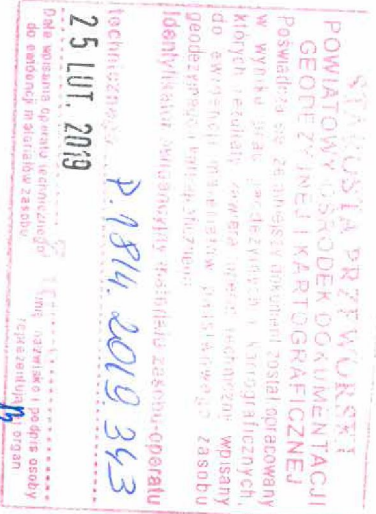 STAROSTA PRZEWORSKI
POWIATOWY OŚRODEK DOKUMENTACJI
GEODEZYJNEJ I KARTOGRAFICZNEJ
Poświadcza się, że niniejszy dokument został opracowany
w wyniku prac geodezyjnych i kartograficznych,
których rezultaty zawiera operat techniczny wpisany
do ewidencji materiałów państwowego zasobu
geodezyjnego i kartograficznego
Identyfikator ewidencyjny materiału zasobu-operatu
technicznego P.1814.2019.343
25 LUT. 2019
Data wpisania operatu technicznego
do ewidencji materiałów zasobu
imię, nazwisko i podpis osoby
reprezentującej organ